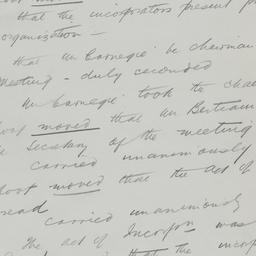 that the incorporators present
organization —
that Mr Carnegie be chairman
Meeting - duly seconded
Mr Carnegie took the chair
moved that Mr Bertram
Secretary of the meeting
carried unanimously
Root moved that the act of
read
carried unanimously
The act of Incorpn was
that the incorp